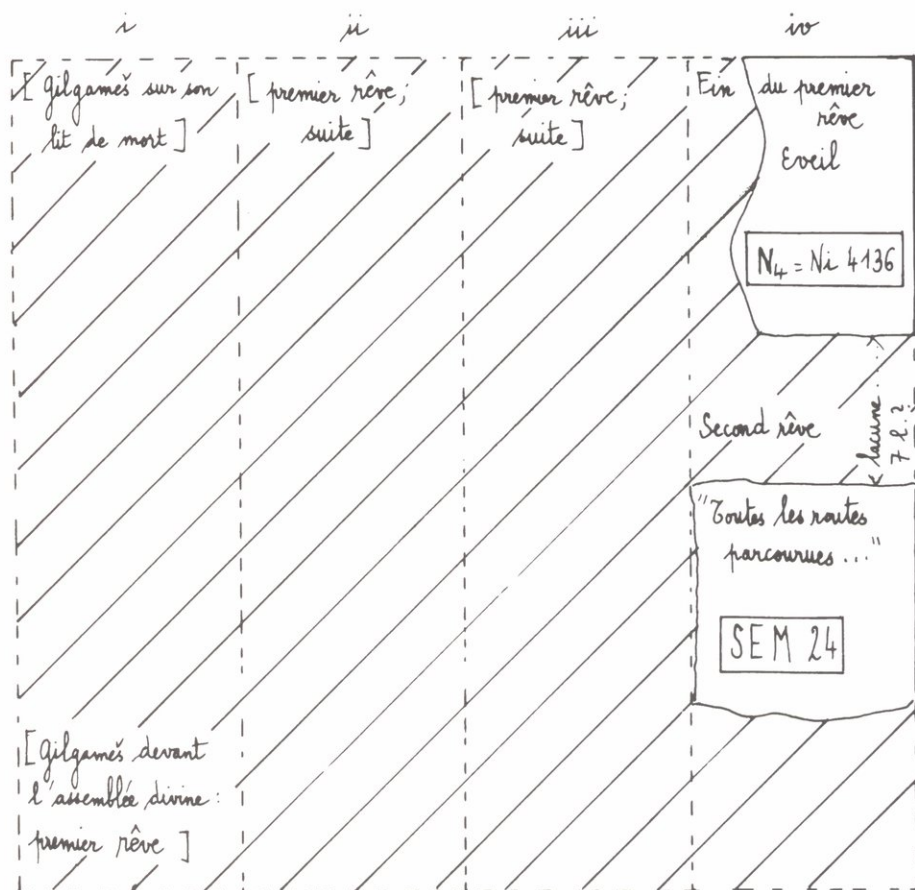 i
ii
iii
iv
[ Gilgameš sur son
lit de mort ]
[ premier rêve;
suite ]
[ premier rêve;
suite ]
Fin du premier
rêve
Eveil
N₄ = Ni 4136
lacune
7 l. ?
Second rêve
"Toutes les routes
parcourues ..."
SEM 24
[ Gilgameš devant
l'assemblée divine :
premier rêve ]